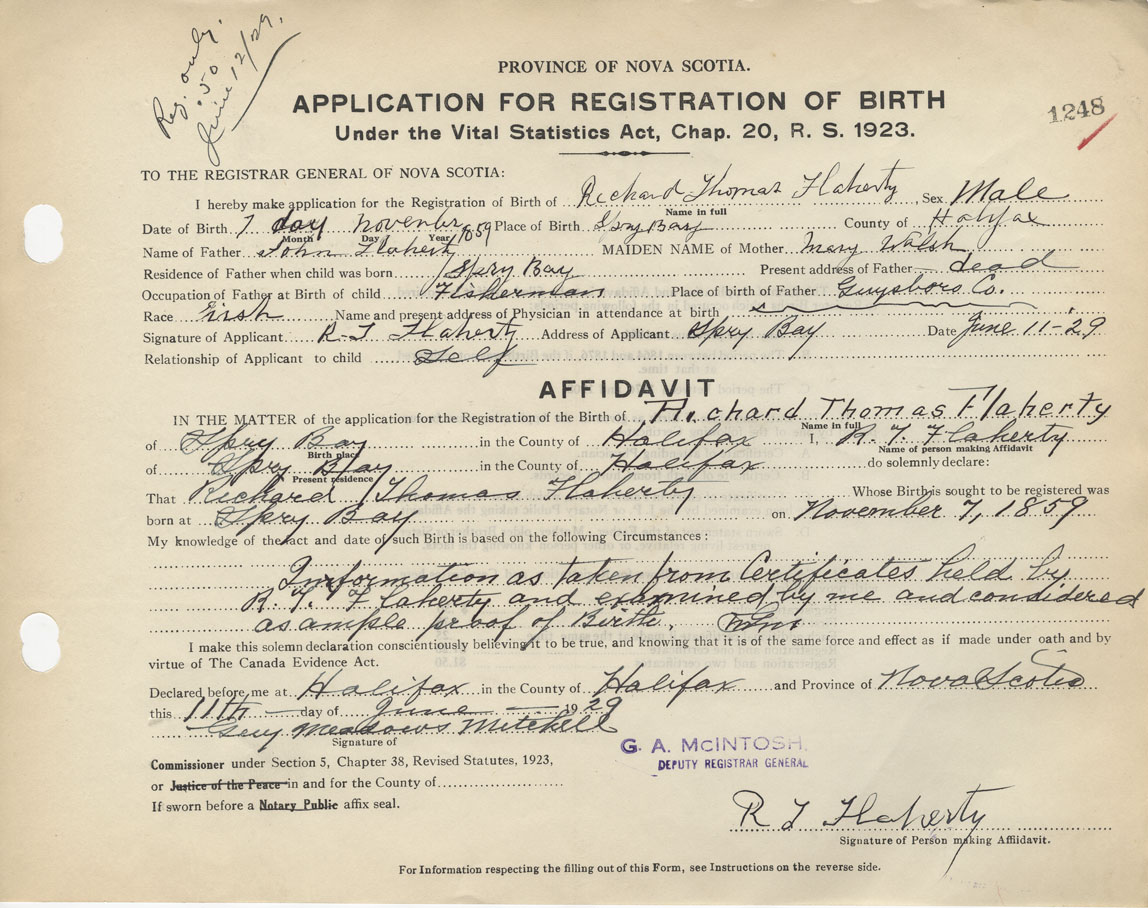 Reg. only.
.50
June 12/29.
PROVINCE OF NOVA SCOTIA.
APPLICATION FOR REGISTRATION OF BIRTH
1248
Under the Vital Statistics Act, Chap. 20, R. S. 1923.
TO THE REGISTRAR GENERAL OF NOVA SCOTIA:
I hereby make application for the Registration of Birth of Richard Thomas Flaherty Sex Male
Name in full
Date of Birth 7 day November 1859 Place of Birth Spry Bay County of Halifax
Month Day Year
Name of Father John Flaherty MAIDEN NAME of Mother Mary Walsh
Residence of Father when child was born Spry Bay Present address of Father dead
Occupation of Father at Birth of child Fisherman Place of birth of Father Guysboro Co.
Race Irish Name and present address of Physician in attendance at birth
Signature of Applicant R-T Flaherty Address of Applicant Spry Bay Date June 11-29
Relationship of Applicant to child Self
AFFIDAVIT
IN THE MATTER of the application for the Registration of the Birth of Richard Thomas Flaherty
Name in full
of Spry Bay in the County of Halifax I, R. T. Flaherty
Birth place Name of person making Affidavit
of Spry Bay in the County of Halifax do solemnly declare:
Present residence
That Richard Thomas Flaherty Whose Birth is sought to be registered was
born at Spry Bay on November 7, 1859
My knowledge of the fact and date of such Birth is based on the following Circumstances:
Information as taken from Certificates held by
R. T. Flaherty and examined by me and considered
as ample proof of Birth.
I make this solemn declaration conscientiously believing it to be true, and knowing that it is of the same force and effect as if made under oath and by
virtue of The Canada Evidence Act.
Declared before me at Halifax in the County of Halifax and Province of Nova Scotia
this 11th day of June 1929
Guy Meadows Mitchell
Signature of
G. A. McINTOSH.
DEPUTY REGISTRAR GENERAL
Commissioner under Section 5, Chapter 38, Revised Statutes, 1923,
or Justice of the Peace in and for the County of
If sworn before a Notary Public affix seal.
R T Flaherty
Signature of Person making Affidavit.
For Information respecting the filling out of this Form, see Instructions on the reverse side.